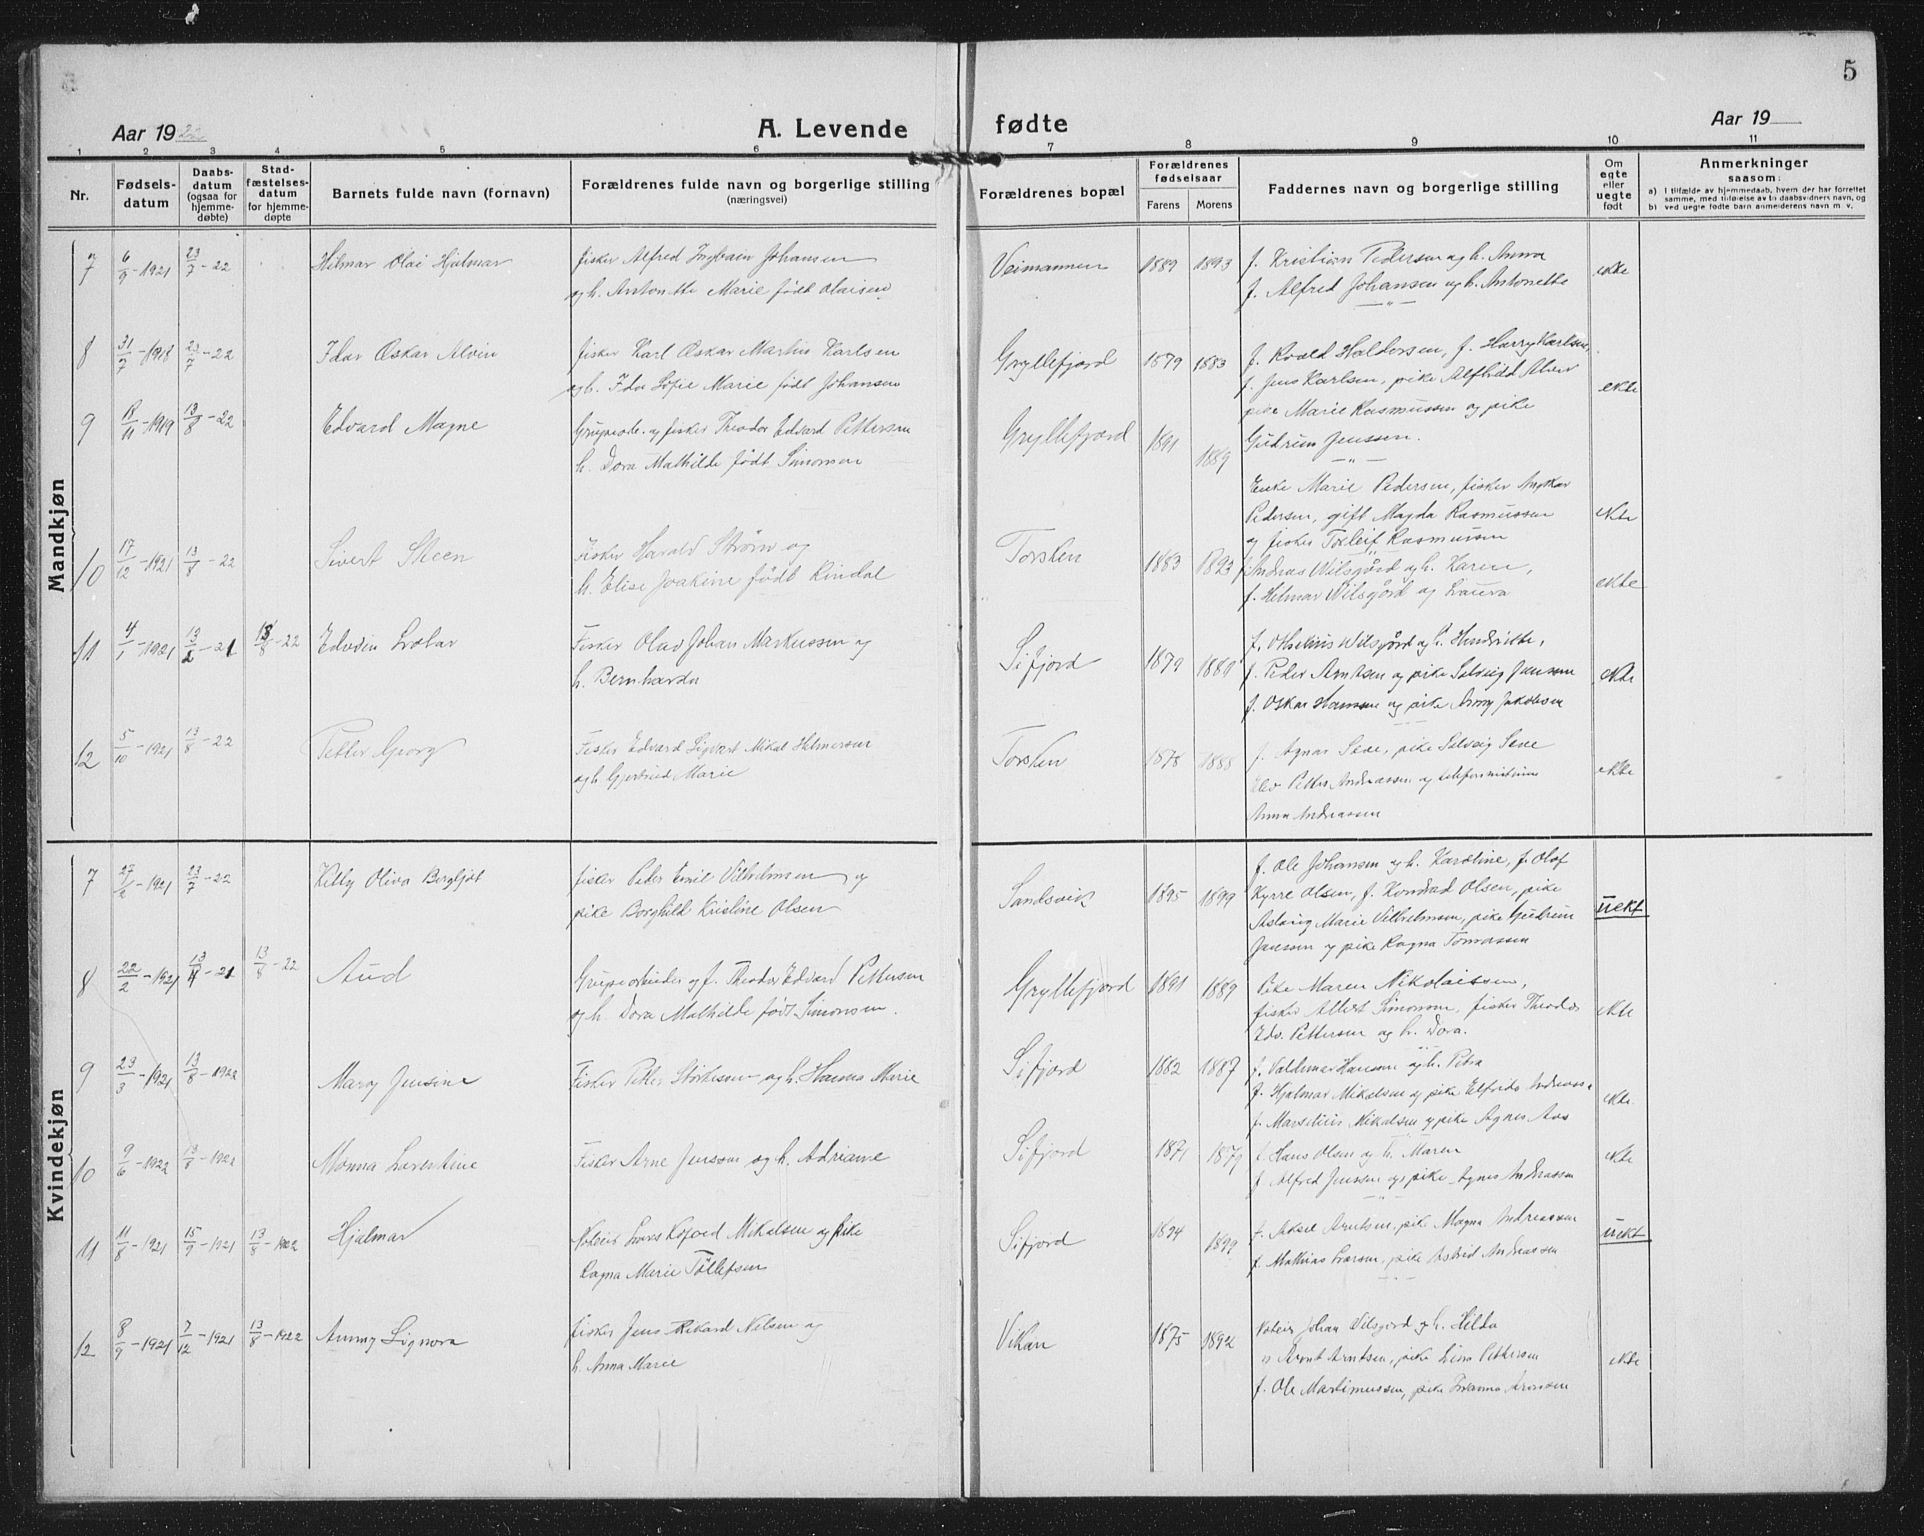 5
Aar 1922
A. Levende
fødte
Aar 19
1 2 3 4 5 6 7 8 9 10 11
Nr.
Fødsels-
datum
Daabs-
datum
(ogsaa for
hjemme-
døbte)
Stad-
fæstelses-
datum
for hjemme-
døpte
Barnets fulde navn (fornavn)
Forældrenes fulde navn og borgerlige stilling
(næringsvei)
Forældrenes bopæl
Forældrenes
fødselsaar
Farens Morens
Faddernes navn og borgerlige stilling
Om
egte
eller
uegte
født
Anmerkninger
saasom:
a) I tilfælde av hjemmedaab, hvem der har forrettet
samme, med tilføielse av to daabsvidners navn, og
b) ved uegte fødte barn anmelderens navn m. v.
Mandkjøn
7 6/9-1921 23/7-22 Hilmar Olai Hjalmar
fisker Alfred Ingbain Johansen
og h. Antonette Marie født Olaisen
Veimannen 1889 1893
f. Kristian Pedersen og h. Anna
f. Alfred Johansen og h. Antonette
ekte
8 31/7-1918 23/7-22 Idar Oskar Alvin
fisker Karl Oskar Martin Karlsen
og h. Ida Sofie Marie født Johansen
Gryllefjord 1879 1883
f. Roald Haldorsen, f. Harry Karlsen,
f. Jens Karlsen, pike Alfhild
pike Marie Rasmussen og pike
Gudrun Jenssen.
ekte
9 18/11-1919 13/8-22 Edvard Magne
Grupearb. og fisker Theodor Edvard Pettersen
h. Dora Mathilde født Simonsen
Gryllefjord 1891 1889
Enke Marie Pedersen, fisker
Pedersen, gift Magda Rasmussen
og fisker Torleif Rasmussen
ekte
10 17/12-1921 13/8-22 Sivert Steen
Fisker Harald Strøm og
h. Elise Joakine født Rindal
Torsken 1883 1893
f. Andreas Wilsgård og h. Karen,
f. Hilmar Wilsgård og Laura
ekte
11 4/1-1921 13/2-21 13/8-22 Edvin
Fisker Olav Johan Markussen og
h. Bernharda
Sifjord 1879 1880
f. Wilsgård og h. Hendriette,
f. Peder Arntsen og pike Solveig Jensen
f. Oskar Hansen og pike Anny Jakobsen
ekte
12 5/10-1921 13/8-22 Petter Georg
Fisker Edvard Sigvart Mikal Hilmersen
og h. Gjertrud Marie
Torsken 1878 1888
f. Agnar Sene, pike Solveig Sene
Elev Petter Andreassen og telefonistinne
Anna Andreassen
ekte
Kvindekjøn
7 27/2-1921 23/7-22 Kitty Oliva Bergljot
fisker Peter Emil Vilhelmsen og
pike Borghild Kristine Olsen
Sandsvik 1895 1899
f. Ole Johansen og h. Karoline, f. Olaf
Kyrre Olsen, f. Konrad Olsen, pike
Aslaug Marie Vilhelmsen, pike Gudrun
Jenssen og pike Ragna Tomassen
uekt
8 22/2-1921 13/4-21 13/8-22 Aud
Grupearbeider og f. Theodor Edvard Pettersen
og h. Dora Mathilde født Simonsen.
Gryllefjord 1891 1889
Pike Maren Nikolaissen,
fisker Albert Simonsen, fisker Theodor
Edv. Pettersen og h. Dora.
ekte
9 23/3-1921 13/8-1922 Mary Jensine
Fisker Petter Størkesen og h. Hanna Marie
Sifjord 1882 1887
f. Valdemar Hansen og h. Petra
f. Hjalmar Mikalsen og pike Elfrida Andreass.
f. Marselius Mikalsen og pike Agnes Aas
ekte.
10 9/6-1922 13/8-1922 Monna Lorentine
Fisker Arne Jenssen og h. Adriane
Sifjord 1871 1879
f. Hans Olsen og h. Maren
f. Alfred Jenssen og pike Agnes Andreassen
ekte
11 11/8-1921 15/9-1921 13/8-1922 Hjalmar
Noteier Lars Kofoed Mikalsen og pike
Ragna Marie Tollefsen
Sifjord 1894 1899
f. Aksel Arntsen, pike Magna Andreassen
f. Mathias Larsen, pike Astrid Andreassen
uekt
12 8/9-1921 7/12-1921 13/8-1922 Annny Signora
fisker Jens Rikard Nelsen og
h. Anna Marie
Vikan 1875 1892
Noteier Johan Wilsgård og h. Hilda
Arnt Arntsen, pike Lina Pettersen
f. Ole Martinussen, pike Johanna Aronsen
ekte